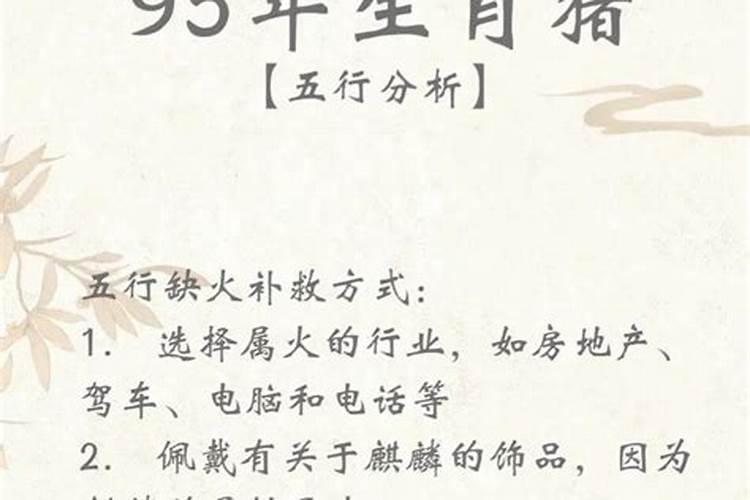 95年生肖猪
【五行分析】
五行缺火补救方式：
1. 选择属火的行业，如房地产、
驾车、电脑和电话等
2. 佩戴有关于麒麟的饰品，因为